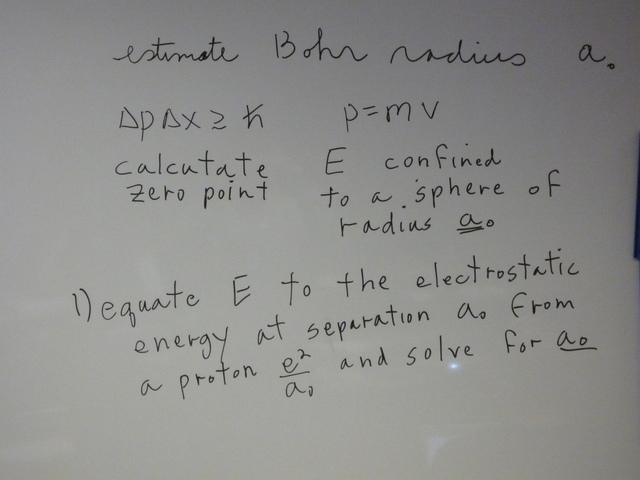 estimate Bohr radius a₀
ΔpΔx ≥ ħ p=mv
calcutate E confined
zero point to a sphere of
radius a₀
1) equate E to the electrostatic
energy at separation a₀ from
a proton e²/a₀ and solve for a₀